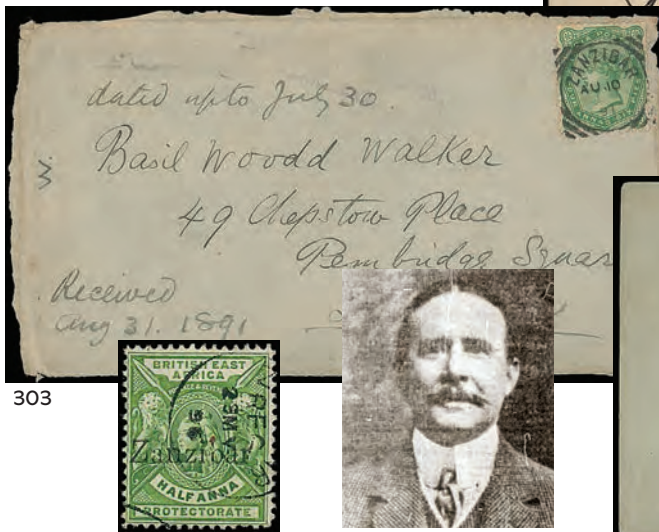 ZANZIBAR
AU 10
dated upto July 30.
W.
Basil Woodd Walker
49 Chepstow Place
Pembridge Squar
Received
Aug 31. 1891
303
BRITISH EAST
AFRICA
Zanzibar
HALF ANNA
PROTECTORATE